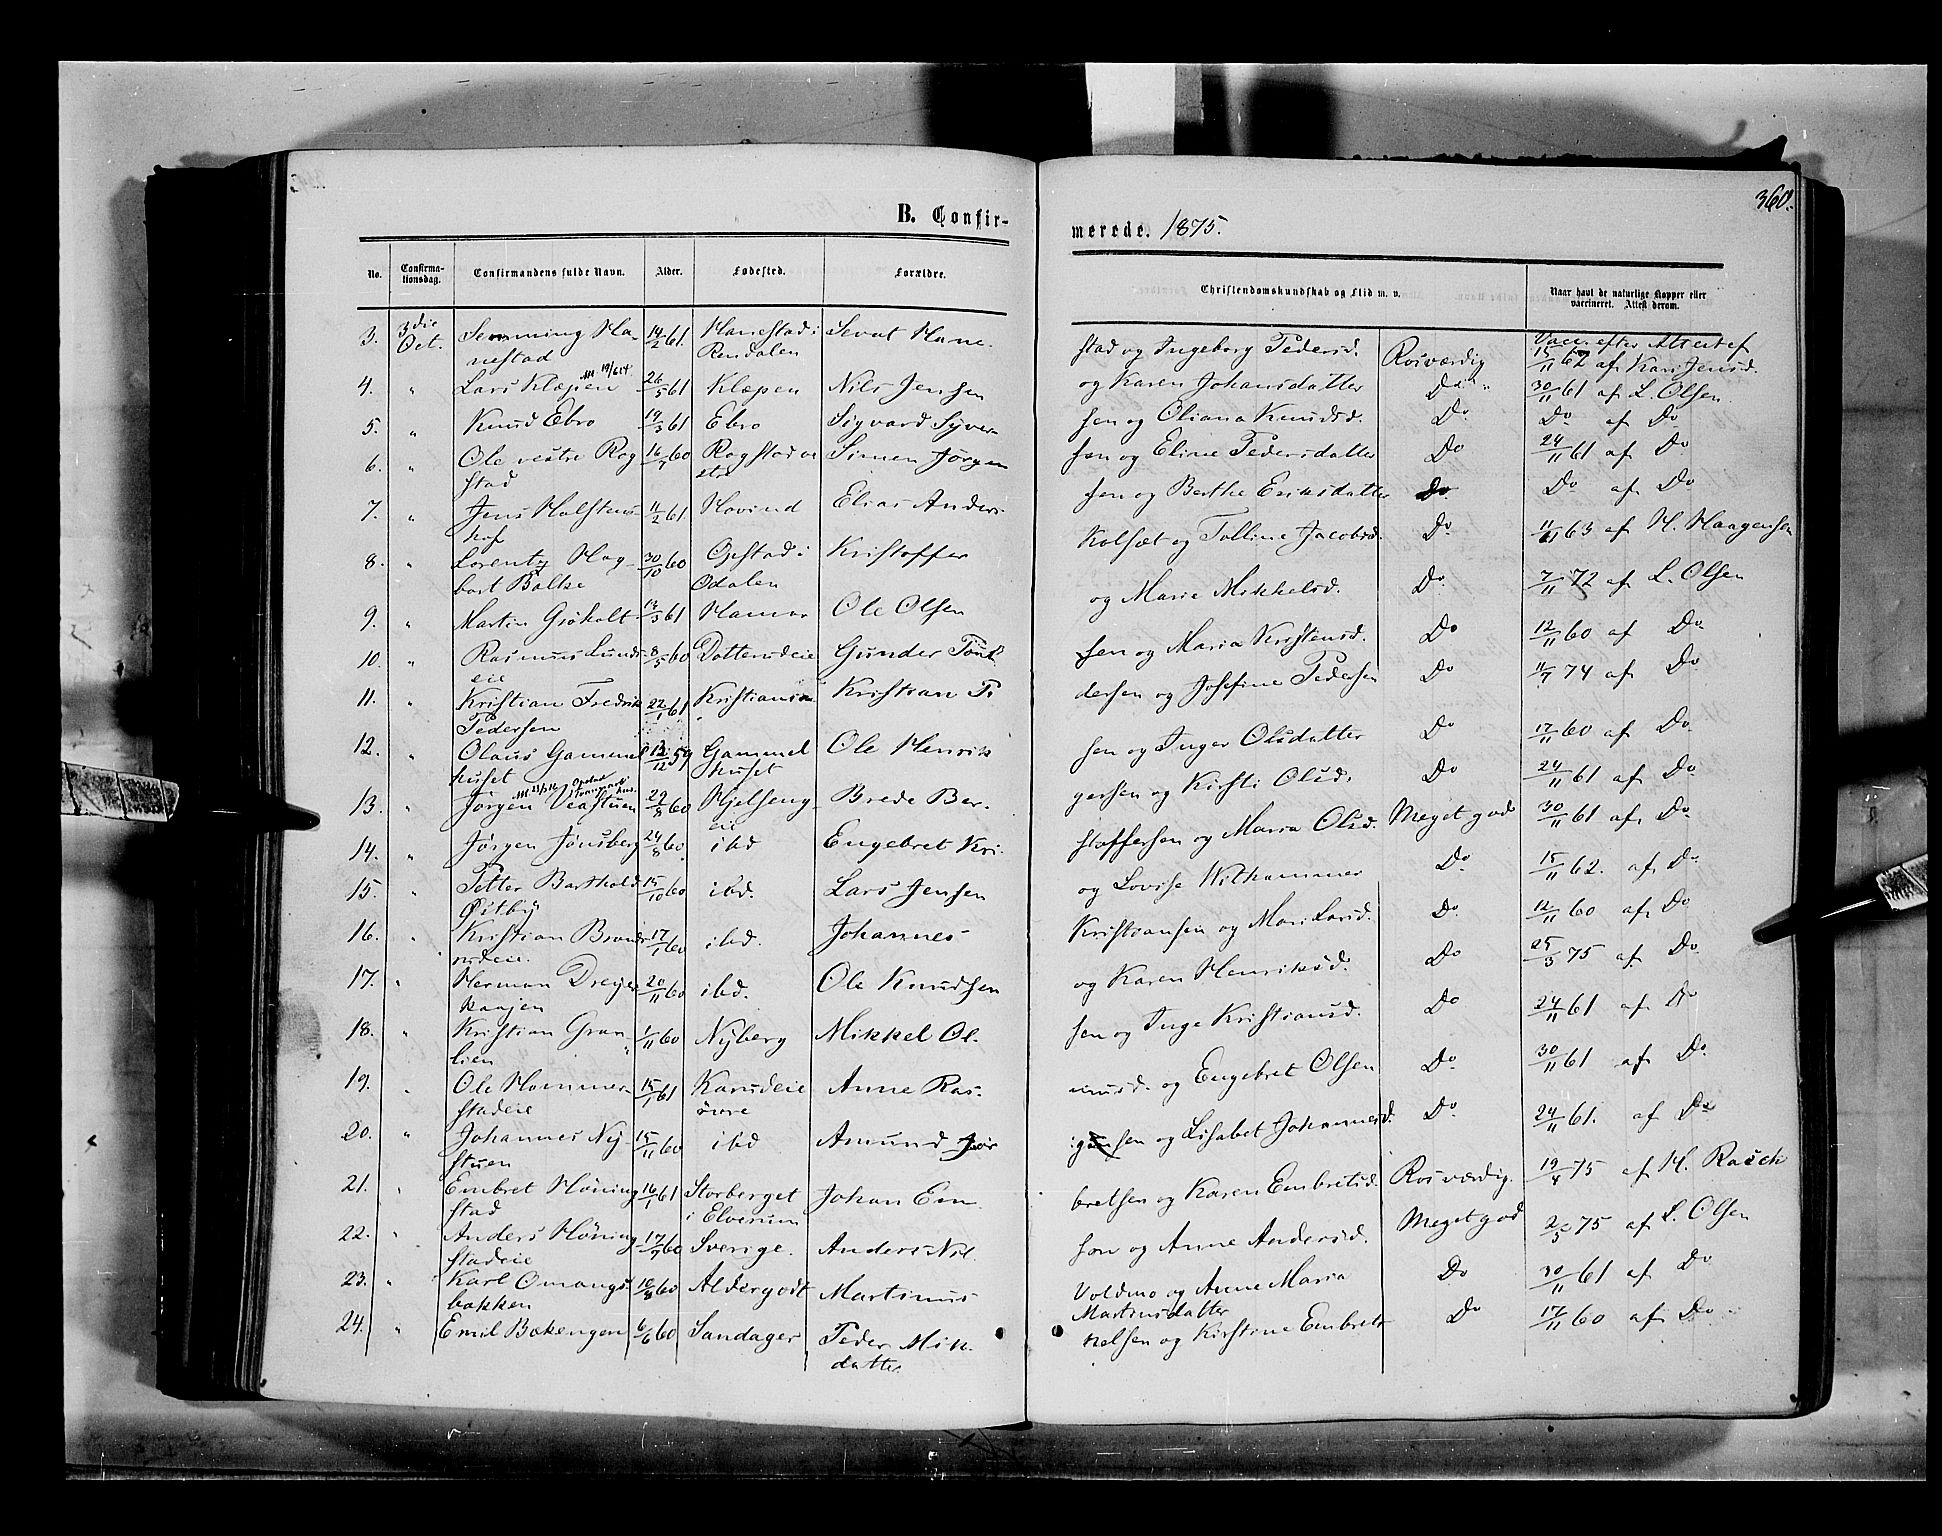 360.
B. Confir-
merede. 1875.
No.
Confirma-
tionsdag.
Confirmandens fulde Navn.
Alder.
Fødested.
Forældre.
Christendomskundskab og Flid m. v.
Naar havt de naturlige Kopper eller
vaccineret. Attest derom.
3. 3die Semming Ha- 14/2 61 Hanestad i Sevat Hane-
Oct. nestad Rendalen
4. " Lars Klæpen 26/5 61 Klæpen Nils Jensen
5. " Knud Ebro 19/3 61 Ebro Sigvard Syver-
6. " Ole vestre Rog 16/ 60 Rogstad ve Simen Jørgen
stad stre
7. " Jens Holstens 11/2 61 Hovind Elias Anders-
hof
8. " Lorentz Hag- 30/10 60 Opstad i Kristoffer
bart Bolke Odalen
9. " Martin Gjøholt 13/3 61 Hamar Ole Olsen
10. " Rasmus Lunds 8/5 60 Dotterudeie Gunder
eie
11. " Kristian Fredrik 22/1 61 Kristiania Kristian P
Pedersen
12. " Olaus Gammel 13/12 59 Gammel Ole Henrik
huset huset
13. " Jørgen 29/8 60 Hjelseng Brede Ber-
eie
14. " Jørgen Jønsberg 24/8 60 ibd Engebret Kri-
15. " Petter Barthold 15/10 60 ibd. Lars Jensen
Østby
16. " Kristian 17/1 60 ibd. Johannes
rudeie.
17. " Herman Dreyer 20/11 60 ibd. Ole Knudsen
kanjen
18. " Kristian Gran 1/11 60 Nyberg Mikkel Ol-
lien
19. " Ole Hommer- 15/1 61 Karudeie Anne Ras-
stadeie øvre
20. " Johannes Ny- 15/11 60 ibd Amund
stuen
21. " Embret Høning 16/1 61 Storberget Johan Em-
stad i Elverum
22. " Anders Høning 17/9 60 Sverige. Anders Nil-
stadeie
23. " Karl Omangs 10/8 60 Aldergodt Martinus
bakken
24. " Emil Bækengen 6/6 60 Sandager Peder Mik-
datter
stad og Ingeborg Pedersd. Rosværdig Vacc. efter Attest af
15/11 62 af Kari Jensd.
og Karen Johansdatter Do 30/11 61 af L. Olsen.
sen og Oliana Knudsd. Do Do af Do
sen og Eline Pedersdatter Do 24/11 61 af Do
sen og Berthe Eriksdatter Do Do af Do
Kolsæt og Folline Jacobsd. Do 11/11 63 af H. Haagensen
og Marie Mikkelsd. Do 7/11 72 af L. Olsen
sen og Maria Kristensd. Do 12/11 60 af Do
dersen og Josefine Pedersen Do 11/7 74 af Do
sen og Inger Olsdatter Do 17/11 60 af Do
gersen og Kirsti Olsd. Do 24/11 61 af Do
stoffersen og Maria Olsd. Meget god 30/11 61 af Do
og Lovise Wilhammer Do 15/11 62. af Do
Kristiansen og Mari Larsd. Do 12/11 60 af Do
og Karen Henriksd. Do 25/3 75 af Do
sen og Inge Kristiansd. Do 24/11 61 af Do
musd. og Engebret Olsen Do 30/11 61 af Do
sen og Lisabet Johannesd. Do 24/11 61. af Do
bretsen og Karen Embretsd. Rosværdig. 19/4 75 af H. Rasch
son og Anne Andersd. Meget god 2/5 75 af L. Olsen
Voldmo og Anne Maria Do 30/11 61 af Do
Martinsdatter
kelsen og Kirstine Embrets Do 17/11 60 af Do